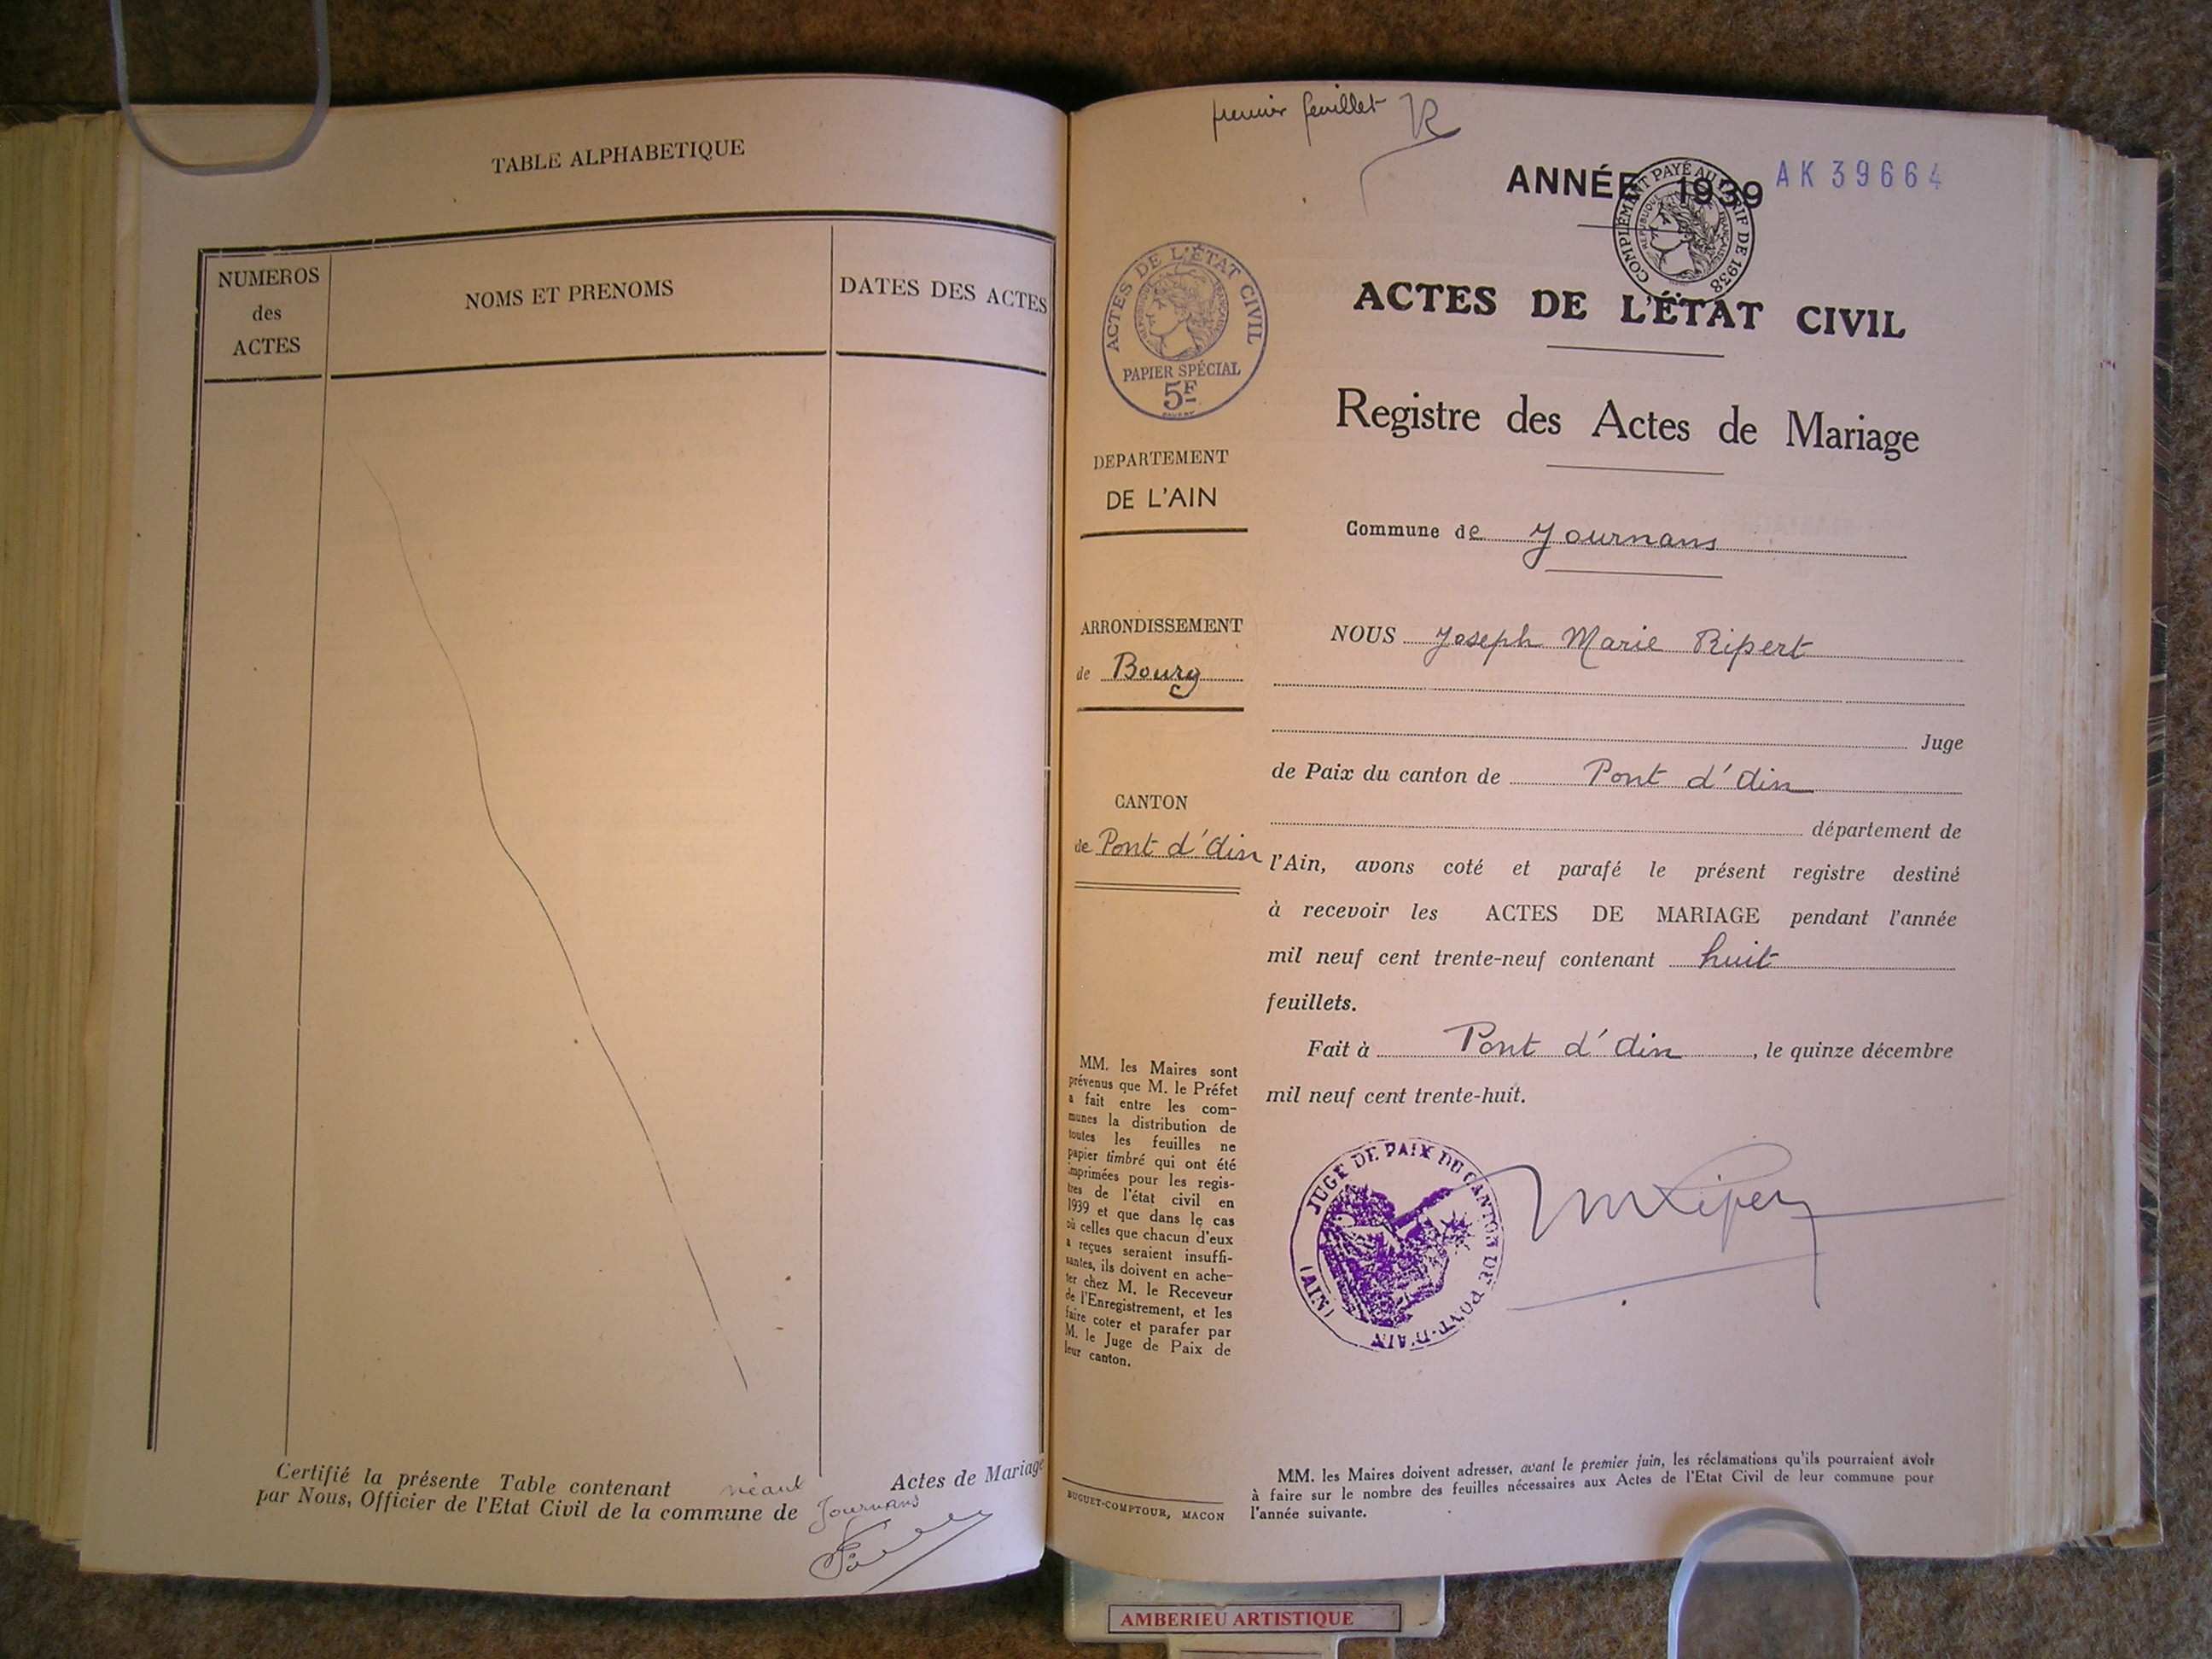 TABLE ALPHABETIQUE
NUMEROS
des
ACTES
NOMS ET PRENOMS
DATES DES ACTES
Certifié la présente Table contenant néant Actes de Mariage
par Nous, Officier de l'Etat Civil de la commune de Journans
premier feuillet
ANNÉE 1939
AK 39664
COMPLÉMENT PAYÉ AU TARIF DE 1938
REPUBLIQUE FRANÇAISE
ACTES DE L'ÉTAT CIVIL
REPUBLIQUE FRANÇAISE
PAPIER SPÉCIAL
5F
DEPARTEMENT
DE L'AIN
ARRONDISSEMENT
de Bourg
CANTON
de Pont d'Ain
MM. les Maires sont
prévenus que M. le Préfet
a fait entre les com-
munes la distribution de
toutes les feuilles ne
papier timbré qui ont été
imprimées pour les regis-
tres de l'état civil en
1939 et que dans le cas
où celles que chacun d'eux
a reçues seraient insuffi-
santes, ils doivent en ache-
ter chez M. le Receveur
de l'Enregistrement, et les
faire coter et parafer par
M. le Juge de Paix de
leur canton.
BUGUET-COMPTOUR, MACON
ACTES DE L'ÉTAT CIVIL
Registre des Actes de Mariage
Commune de Journans
NOUS Joseph Marie Ripert
Juge
de Paix du canton de Pont d'Ain
département de
l'Ain, avons coté et parafé le présent registre destiné
à recevoir les ACTES DE MARIAGE pendant l'année
mil neuf cent trente-neuf contenant huit
feuillets.
Fait à Pont d'Ain, le quinze décembre
mil neuf cent trente-huit.
JUGE DE PAIX DU CANTON DE PONT-D'AIN
(AIN)
MM. les Maires doivent adresser, avant le premier juin, les réclamations qu'ils pourraient avoir
à faire sur le nombre des feuilles nécessaires aux Actes de l'Etat Civil de leur commune pour
l'année suivante.
AMBERIEU ARTISTIQUE